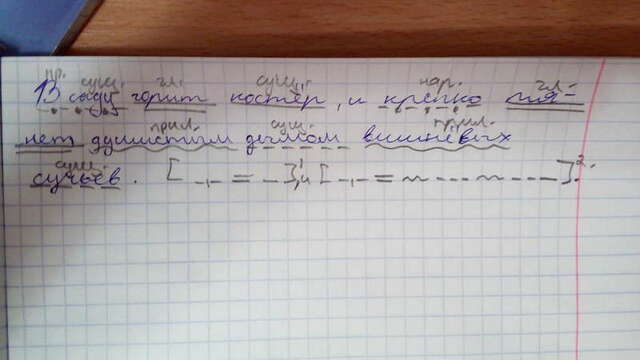 пр. сущ. гл. сущ. нар. гл.
В саду горит костёр, и крепко тя-
прил. сущ. прил.
нет душистым дымом вишнёвых
сущ.
сучьев. [ _._ = _ ]¹, и [ _._ = ~ --- ~ --- ]².